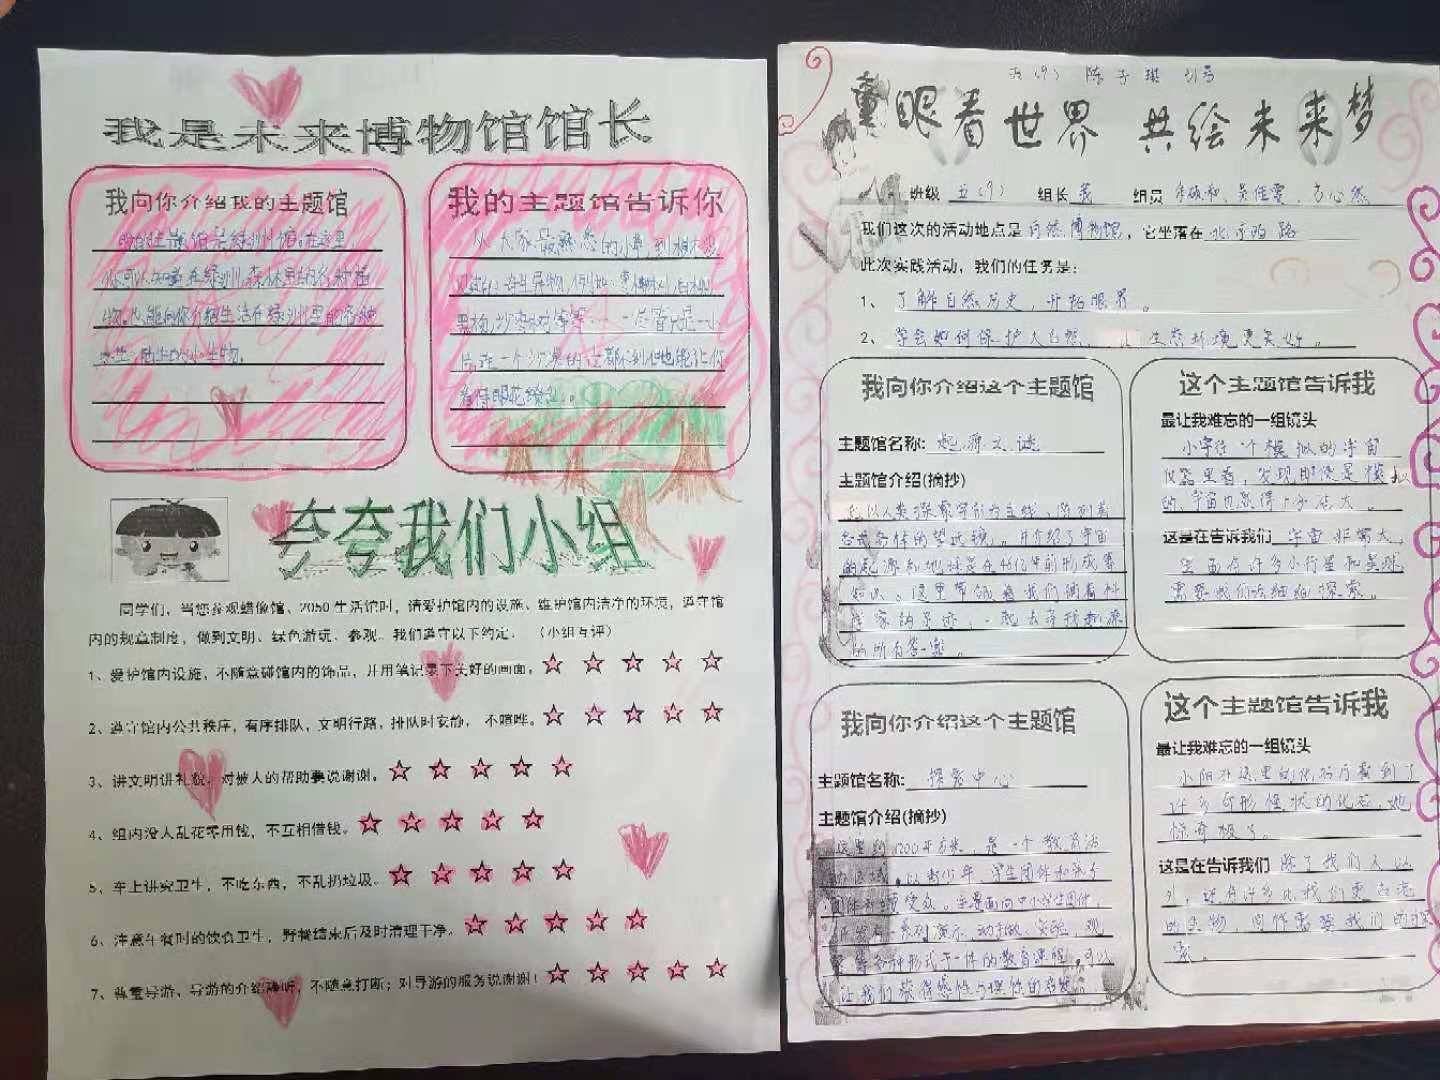 我是未来博物馆馆长
我向你介绍我的主题馆
我的主题馆是绿洲馆。在这里,
你可以知道在绿洲森林里的各种植
物。
我的主题馆告诉你
从大家最熟悉的小草,到
着你眼花缭乱。
夸夸我们小组
同学们,当您参观蜡像馆、2050生活馆时,请爱护馆内的设施、维护馆内洁净的环境,遵守馆
内的规章制度,做到文明、绿色游玩、参观。我们遵守以下约定。(小组互评)
1、爱护馆内设施,不随意碰馆内的饰品,并用笔记录下美好的画面。☆☆☆☆☆
2、遵守馆内公共秩序,有序排队,文明行路,排队时安静,不喧哗。☆☆☆☆☆
3、讲文明讲礼貌,对被人的帮助要说谢谢。☆☆☆☆☆
4、组内没人乱花零用钱,不互相借钱。☆☆☆☆☆
5、车上讲究卫生,不吃东西,不乱扔垃圾。☆☆☆☆☆
6、注意午餐时的饮食卫生,野餐结束后及时清理干净。☆☆☆☆☆
7、尊重导游、导游的介绍静听,不随意打断;对导游的服务说谢谢!☆☆☆☆☆
五(9) 陈子琪 21号
童眼看世界 共绘未来梦
班级 五(9) 组长 组员
我们这次的活动地点是自然博物馆,它坐落在北京西路
此次实践活动,我们的任务是:
1、了解自然历史,开拓眼界。
2、学会如何保护大自然, 生态环境更美好。
我向你介绍这个主题馆
主题馆名称:起源之谜
主题馆介绍(摘抄)
以人类探索宇宙为主线,陈列着
各式各样的望远镜。并介绍了宇宙
的起源和地球是在46亿年前形成等
知识。这里带领着我们循着科
学家的足迹,一起去寻找起源
的所有答案。
这个主题馆告诉我
最让我难忘的一组镜头
小宇在一个模拟的宇宙
仪器里看,发现即使是模拟
的,宇宙也显得十分庞大。
这是在告诉我们 宇宙非常大,
里面有许多小行星和星球
需要我们去细细探索。
我向你介绍这个主题馆
主题馆名称:探索中心
主题馆介绍(摘抄)
这里约1200平方米,是一个教育活
动区域,以青少年、学生团体和亲子
团体为主要受众。主要面向中小学生团体,
开发有一系列演示、动手做、实验、观
察等各种形式于一体的教育课程,可以
让我们获得感性与理性的
这个主题馆告诉我
最让我难忘的一组镜头
小阳在这里的化石厅看到了
许多奇形怪状的化石,她
惊奇极了。
这是在告诉我们 除了我们人以
外,还有许多比我们更古老
的生物,同样需要我们的探
索。